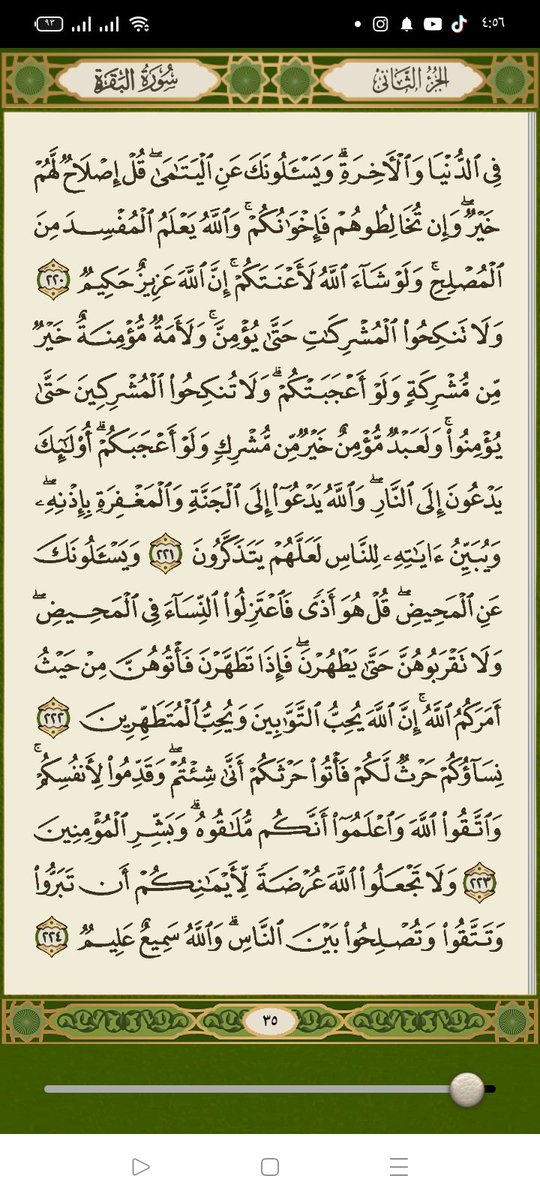 ٩٢
٤:٥٦
سُورَةُ البَقَرَةِ
الجُزْءُ الثَّانِي
فِي ٱلدُّنْيَا وَٱلْـَٔاخِرَةِۗ وَيَسْـَٔلُونَكَ عَنِ ٱلْيَتَٰمَىٰۖ قُلْ إِصْلَاحٌ لَّهُمْ
خَيْرٌۖ وَإِن تُخَالِطُوهُمْ فَإِخْوَٰنُكُمْۚ وَٱللَّهُ يَعْلَمُ ٱلْمُفْسِدَ مِنَ
ٱلْمُصْلِحِۚ وَلَوْ شَآءَ ٱللَّهُ لَأَعْنَتَكُمْۚ إِنَّ ٱللَّهَ عَزِيزٌ حَكِيمٌ ٢٢٠
وَلَا تَنكِحُوا۟ ٱلْمُشْرِكَٰتِ حَتَّىٰ يُؤْمِنَّۚ وَلَأَمَةٌ مُّؤْمِنَةٌ خَيْرٌ
مِّن مُّشْرِكَةٍ وَلَوْ أَعْجَبَتْكُمْۗ وَلَا تُنكِحُوا۟ ٱلْمُشْرِكِينَ حَتَّىٰ
يُؤْمِنُوا۟ۚ وَلَعَبْدٌ مُّؤْمِنٌ خَيْرٌ مِّن مُّشْرِكٍ وَلَوْ أَعْجَبَكُمْۗ أُو۟لَٰٓئِكَ
يَدْعُونَ إِلَى ٱلنَّارِۖ وَٱللَّهُ يَدْعُوٓا۟ إِلَى ٱلْجَنَّةِ وَٱلْمَغْفِرَةِ بِإِذْنِهِۦۖ
وَيُبَيِّنُ ءَايَٰتِهِۦ لِلنَّاسِ لَعَلَّهُمْ يَتَذَكَّرُونَ ٢٢١ وَيَسْـَٔلُونَكَ
عَنِ ٱلْمَحِيضِۖ قُلْ هُوَ أَذًى فَٱعْتَزِلُوا۟ ٱلنِّسَآءَ فِي ٱلْمَحِيضِۖ
وَلَا تَقْرَبُوهُنَّ حَتَّىٰ يَطْهُرْنَۖ فَإِذَا تَطَهَّرْنَ فَأْتُوهُنَّ مِنْ حَيْثُ
أَمَرَكُمُ ٱللَّهُۚ إِنَّ ٱللَّهَ يُحِبُّ ٱلتَّوَّٰبِينَ وَيُحِبُّ ٱلْمُتَطَهِّرِينَ ٢٢٢
نِسَآؤُكُمْ حَرْثٌ لَّكُمْ فَأْتُوا۟ حَرْثَكُمْ أَنَّىٰ شِئْتُمْۖ وَقَدِّمُوا۟ لِأَنفُسِكُمْۚ
وَٱتَّقُوا۟ ٱللَّهَ وَٱعْلَمُوٓا۟ أَنَّكُم مُّلَٰقُوهُۗ وَبَشِّرِ ٱلْمُؤْمِنِينَ
٢٢٣ وَلَا تَجْعَلُوا۟ ٱللَّهَ عُرْضَةً لِّأَيْمَٰنِكُمْ أَن تَبَرُّوا۟
وَتَتَّقُوا۟ وَتُصْلِحُوا۟ بَيْنَ ٱلنَّاسِۗ وَٱللَّهُ سَمِيعٌ عَلِيمٌ ٢٢٤
٣٥